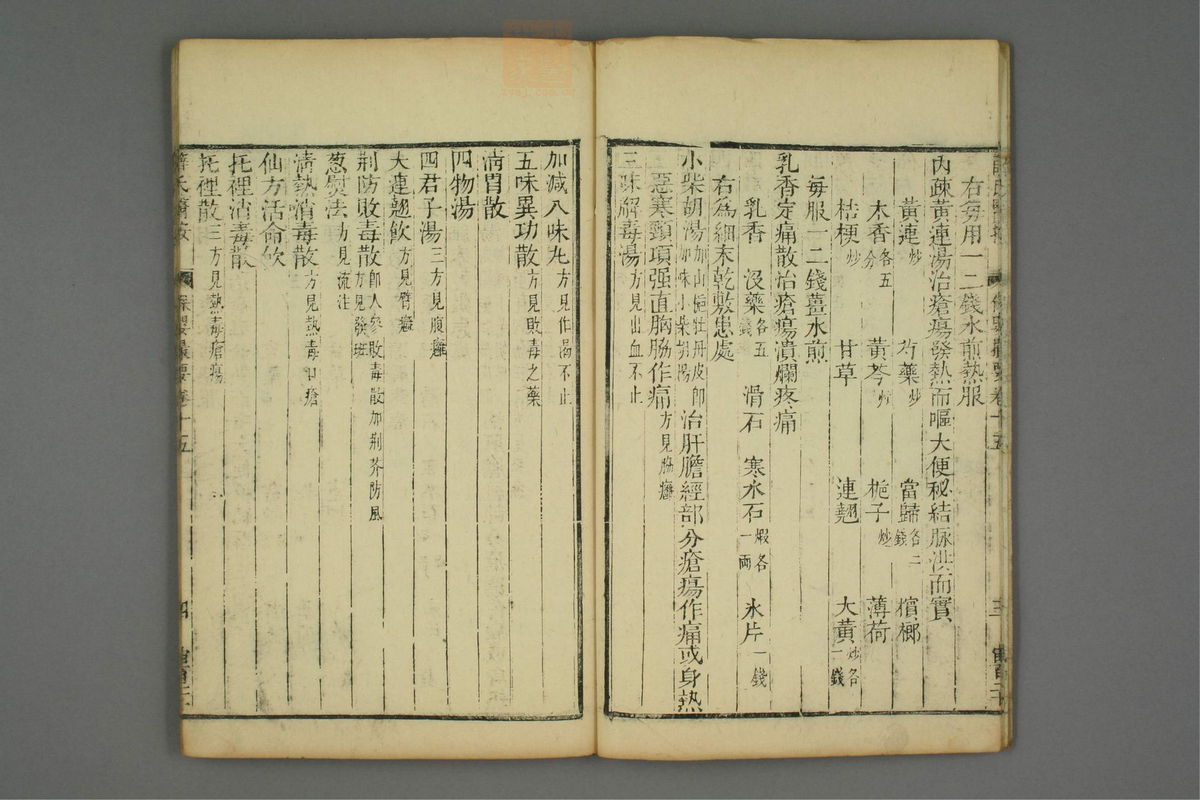 右每用一二錢水煎熱服
內疎黃連湯治瘡瘍發熱而嘔大便秘結脉洪而實
黃連炒 芍藥炒 當歸各二錢 檳榔
木香各五分 黃芩炒 梔子炒 薄荷
桔梗炒 甘草 連翹 大黃炒各一錢
每服一二錢薑水煎
乳香定痛散治瘡瘍潰爛疼痛
乳香 沒藥各五錢 滑石 寒水石煅各一兩 氷片一錢
右為細末乾敷患處
小柴胡湯加山梔牡丹皮即加味小柴胡湯治肝膽經部分瘡瘍作痛或身熱
惡寒頸項强直胸脇作痛方見脇癰
三味解毒湯方見出血不止
加減八味丸方見作渴不止
五味異功散方見敗毒之藥
清胃散
四物湯
四君子湯三方見腹癰
大連翹飲方見臂癰
荊防敗毒散即人參敗毒散加荊芥防風方見發班
葱熨法方見流注
清熱消毒散方見熱毒口瘡
仙方活命飲
托裡消毒散
托裡散三方見熱毒瘡瘍
薛氏醫按 保嬰撮要卷十五 四